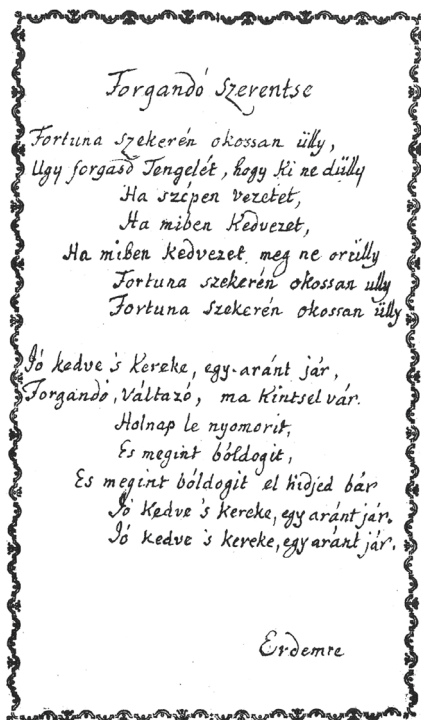 Forgandó Szerentse
Fortuna szekerén okossan üłly,
Ugy forgasd Tengelét, hogy ki ne düłly
Ha szépen vezetet,
Ha miben Kedvezet,
Ha miben kedvezet meg ne orüłly
Fortuna szekerén okossan ułly
Fortuna Szekerén okossan üłly
Jó kedve 's kereke, egy-aránt jár,
Forgandó, váltazó, ma Kintsel vár.
Holnap le nyomorit,
Es megint bóldogit,
Es megint bóldogit el hidjed bár
Jó kedve 's kereke, egy aránt jár.
Jó kedve 's kereke, egy aránt jár.
Erdemre